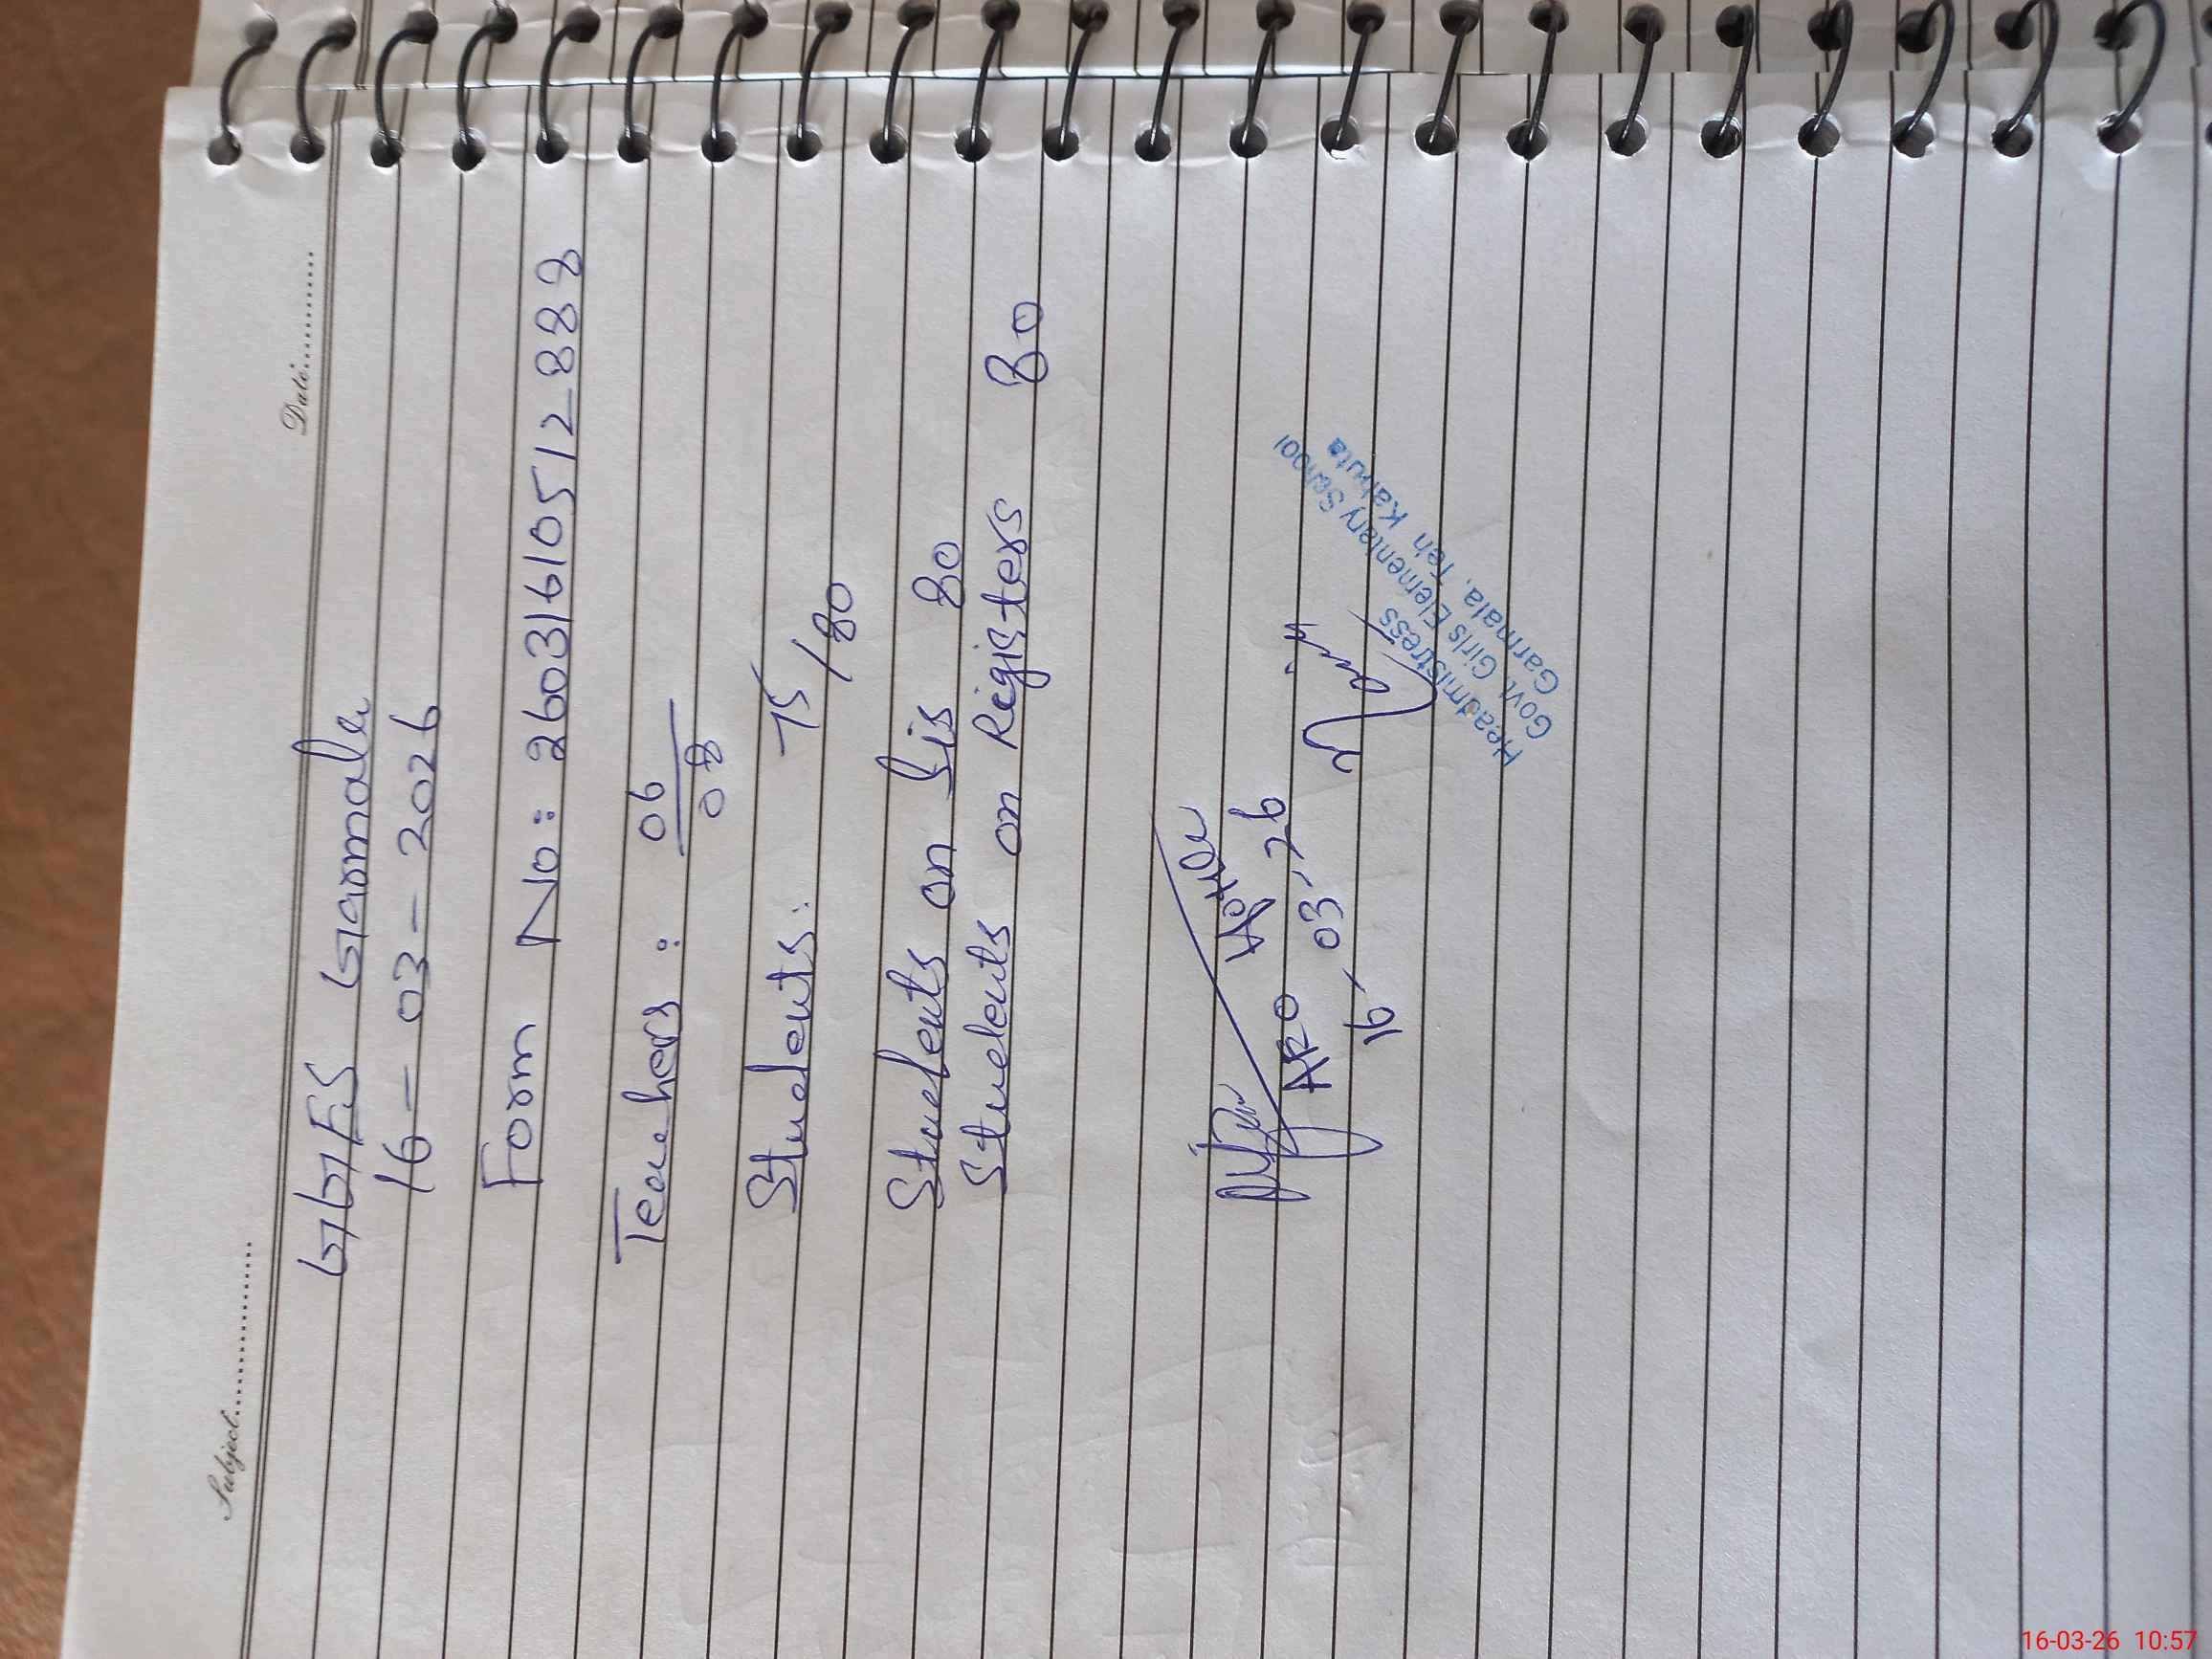 Subject
Date
GGES Garmala
16-03-2026
Form No: 26031610512888
Teachers: 06/08
Students: 75/80
Students on Sis 80
Students on Registers 80
AEO
16-03-26
Headmistress
Govt. Girls Elementary School
Garmala, Teh Kahuta
16-03-26 10:57